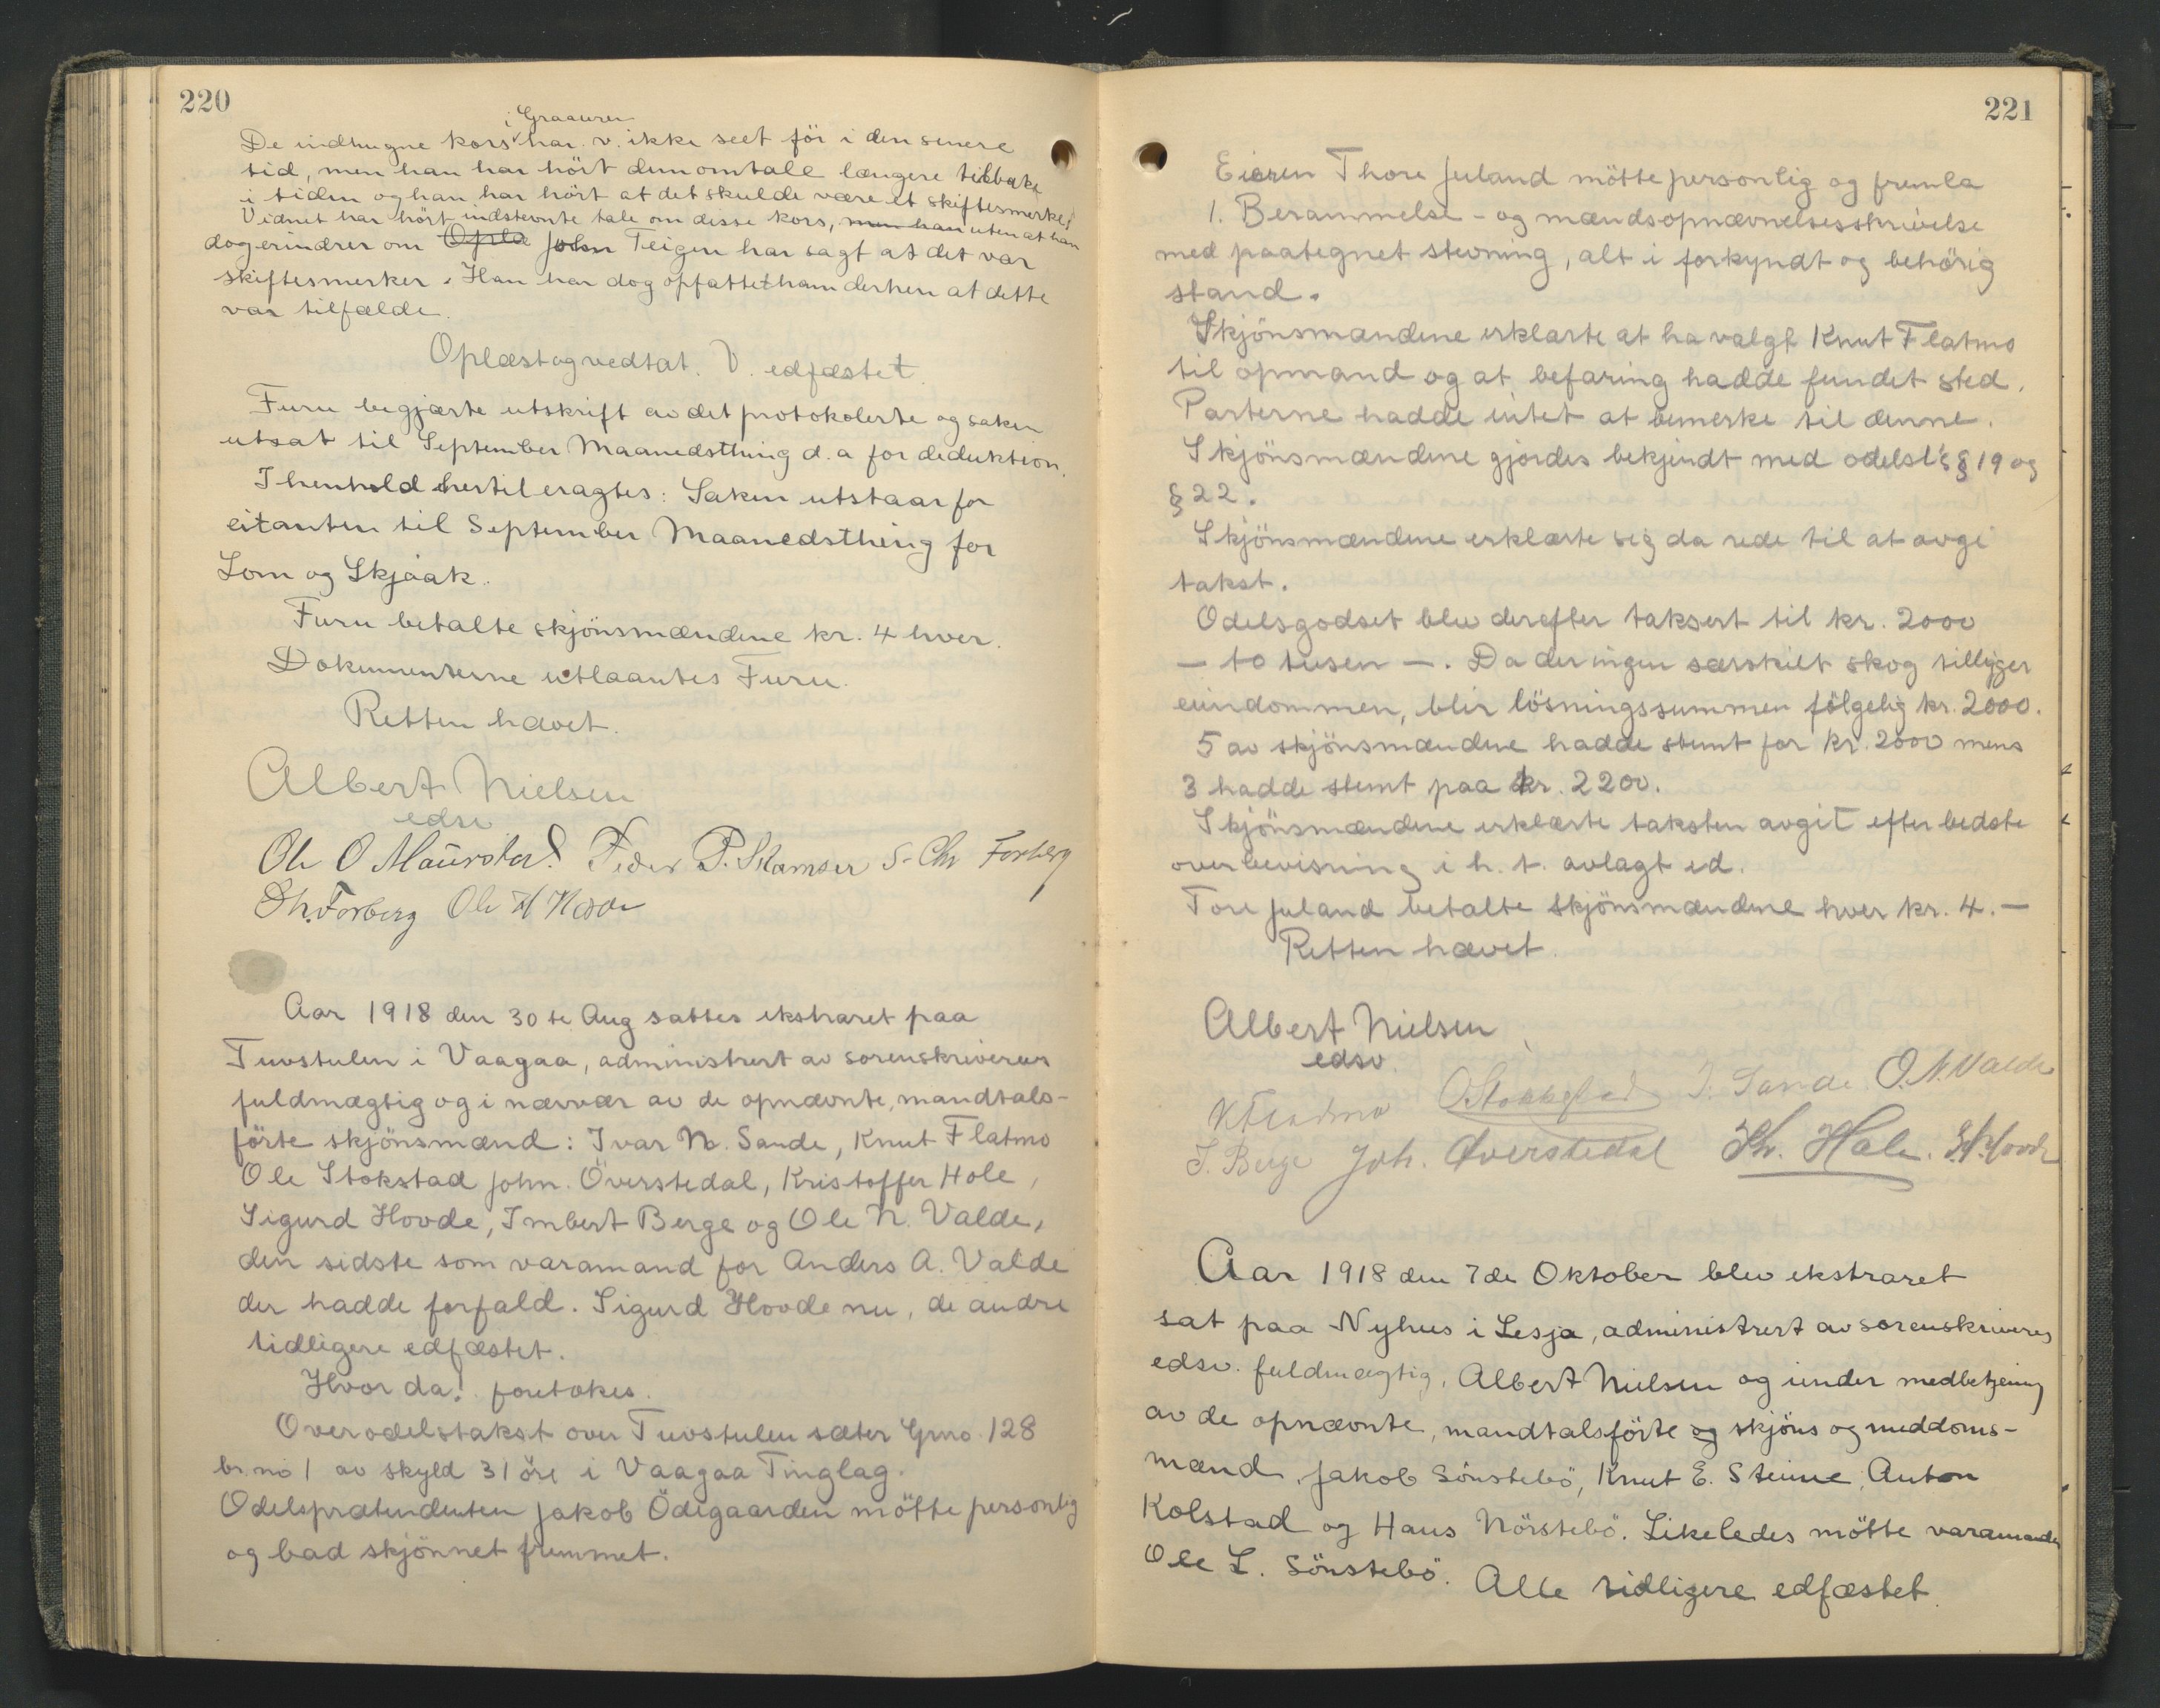 220
i Graaurer
De indhugne kors har v. ikke seet för i den senere
tid, men han har hört dem omtale længere tilbake
i tiden og han har hört at det skulde være et skiftesmerke.
Vidnet har hört indstevnte tale om disse kors, men han uten at han
dog erindrer om Ople John Teigen har sagt at det var
skiftesmerker. Han har dog opfattet ham derhen at dette
var tilfælde.
Oplæst og vedtat. V. edfæstet.
Furu begjærte utskrift av det protokolerte og saken
utsat til September Maanedsthing d. a for deduktion.
I henhold hertil eragtes: Saken utstaar for
citanten til September Maanedsthing for
Lom og Skjaak.
Furu betalte skjönsmændene kr. 4 hver.
Dokumenterne utlaantes Furu.
Retten hævet.
Albert Nielsen
edsv
Ole O Maurstad. Peder P. Skamsar S. Chr Forberg
Th. Forberg Ole H
Aar 1918 den 30te Aug sattes ekstraret paa
Tuvstulen i Vaagaa, administrert av sorenskriverens
fuldmægtig og i nærvær av de opnævnte, mandtals-
förte skjönsmænd: Ivar N. Sande, Knut Flatmo
Ole Stokstad John. Överstedal, Kristoffer Hole,
Sigurd Hovde, Imbert Berge og Ole N. Valde,
den sidste som varamand for Anders A. Valde
der hadde forfald. Sigurd Hovde nu, de andre
tidligere edfæstet.
Hvor da! foretokes.
Overodelstakst over Tuvstulen sæter Gno. 128
br. no 1 av skyld 31 öre i Vaagaa Tinglag.
Odelsprætendenten Jakob Ödegaarden mötte personlig
og bad skjönnet fremmet.
221
Eieren Thore Juland mötte personlig og fremla
1. Berammelse- og mændsopnævnelsesskrivelse
med paategnet stevning, alt i forkyndt og behörig
stand.
Skjönsmændene erklærte at ha valgt Knut Flatmo
til opmand og at befaring hadde fundet sted.
Parterne hadde intet at bemerke til denne.
Skjönsmændene gjordes bekjendt med odelsl's § 19 og
§ 22.
Skjönsmændene erklærte sig da rede til at avgi
takst.
Odelsgodset blev derefter taksert til kr. 2000
— to tusen —. Da der ingen særskilt skog tilligger
eiendommen, blir lösningssummen fölgelig kr. 2000.
5 av skjönsmændene hadde stemt for kr. 2000 mens
3 hadde stemt paa kr. 2200.
Skjönsmændene erklærte taksten avgit efter bedste
overbevisning i h. t. avlagt ed.
Tore Juland betalte skjönsmændene hver kr. 4.—
Retten hævet.
Albert Nielsen
edsv.
K Flatmo O Stokstad I. Sande O. N. Valde
I. Berge Joh. Øverstedal Kr. Hole. S. Hovde
Aar 1918 den 7de Oktober blev ekstraret
sat paa Nyhus i Lesja, administrert av sorenskriveres
edsv. fuldmægtig, Albert Nielsen og under medbetjening
av de opnævnte, mandtalsförte og skjöns og meddoms-
mænd, Jakob Sönstebö, Knut E. Steine, Anton
Kolstad og Hans Nörstebö. Likeledes mötte varamanden
Ole L. Sönstebö. Alle tidligere edfæstet.